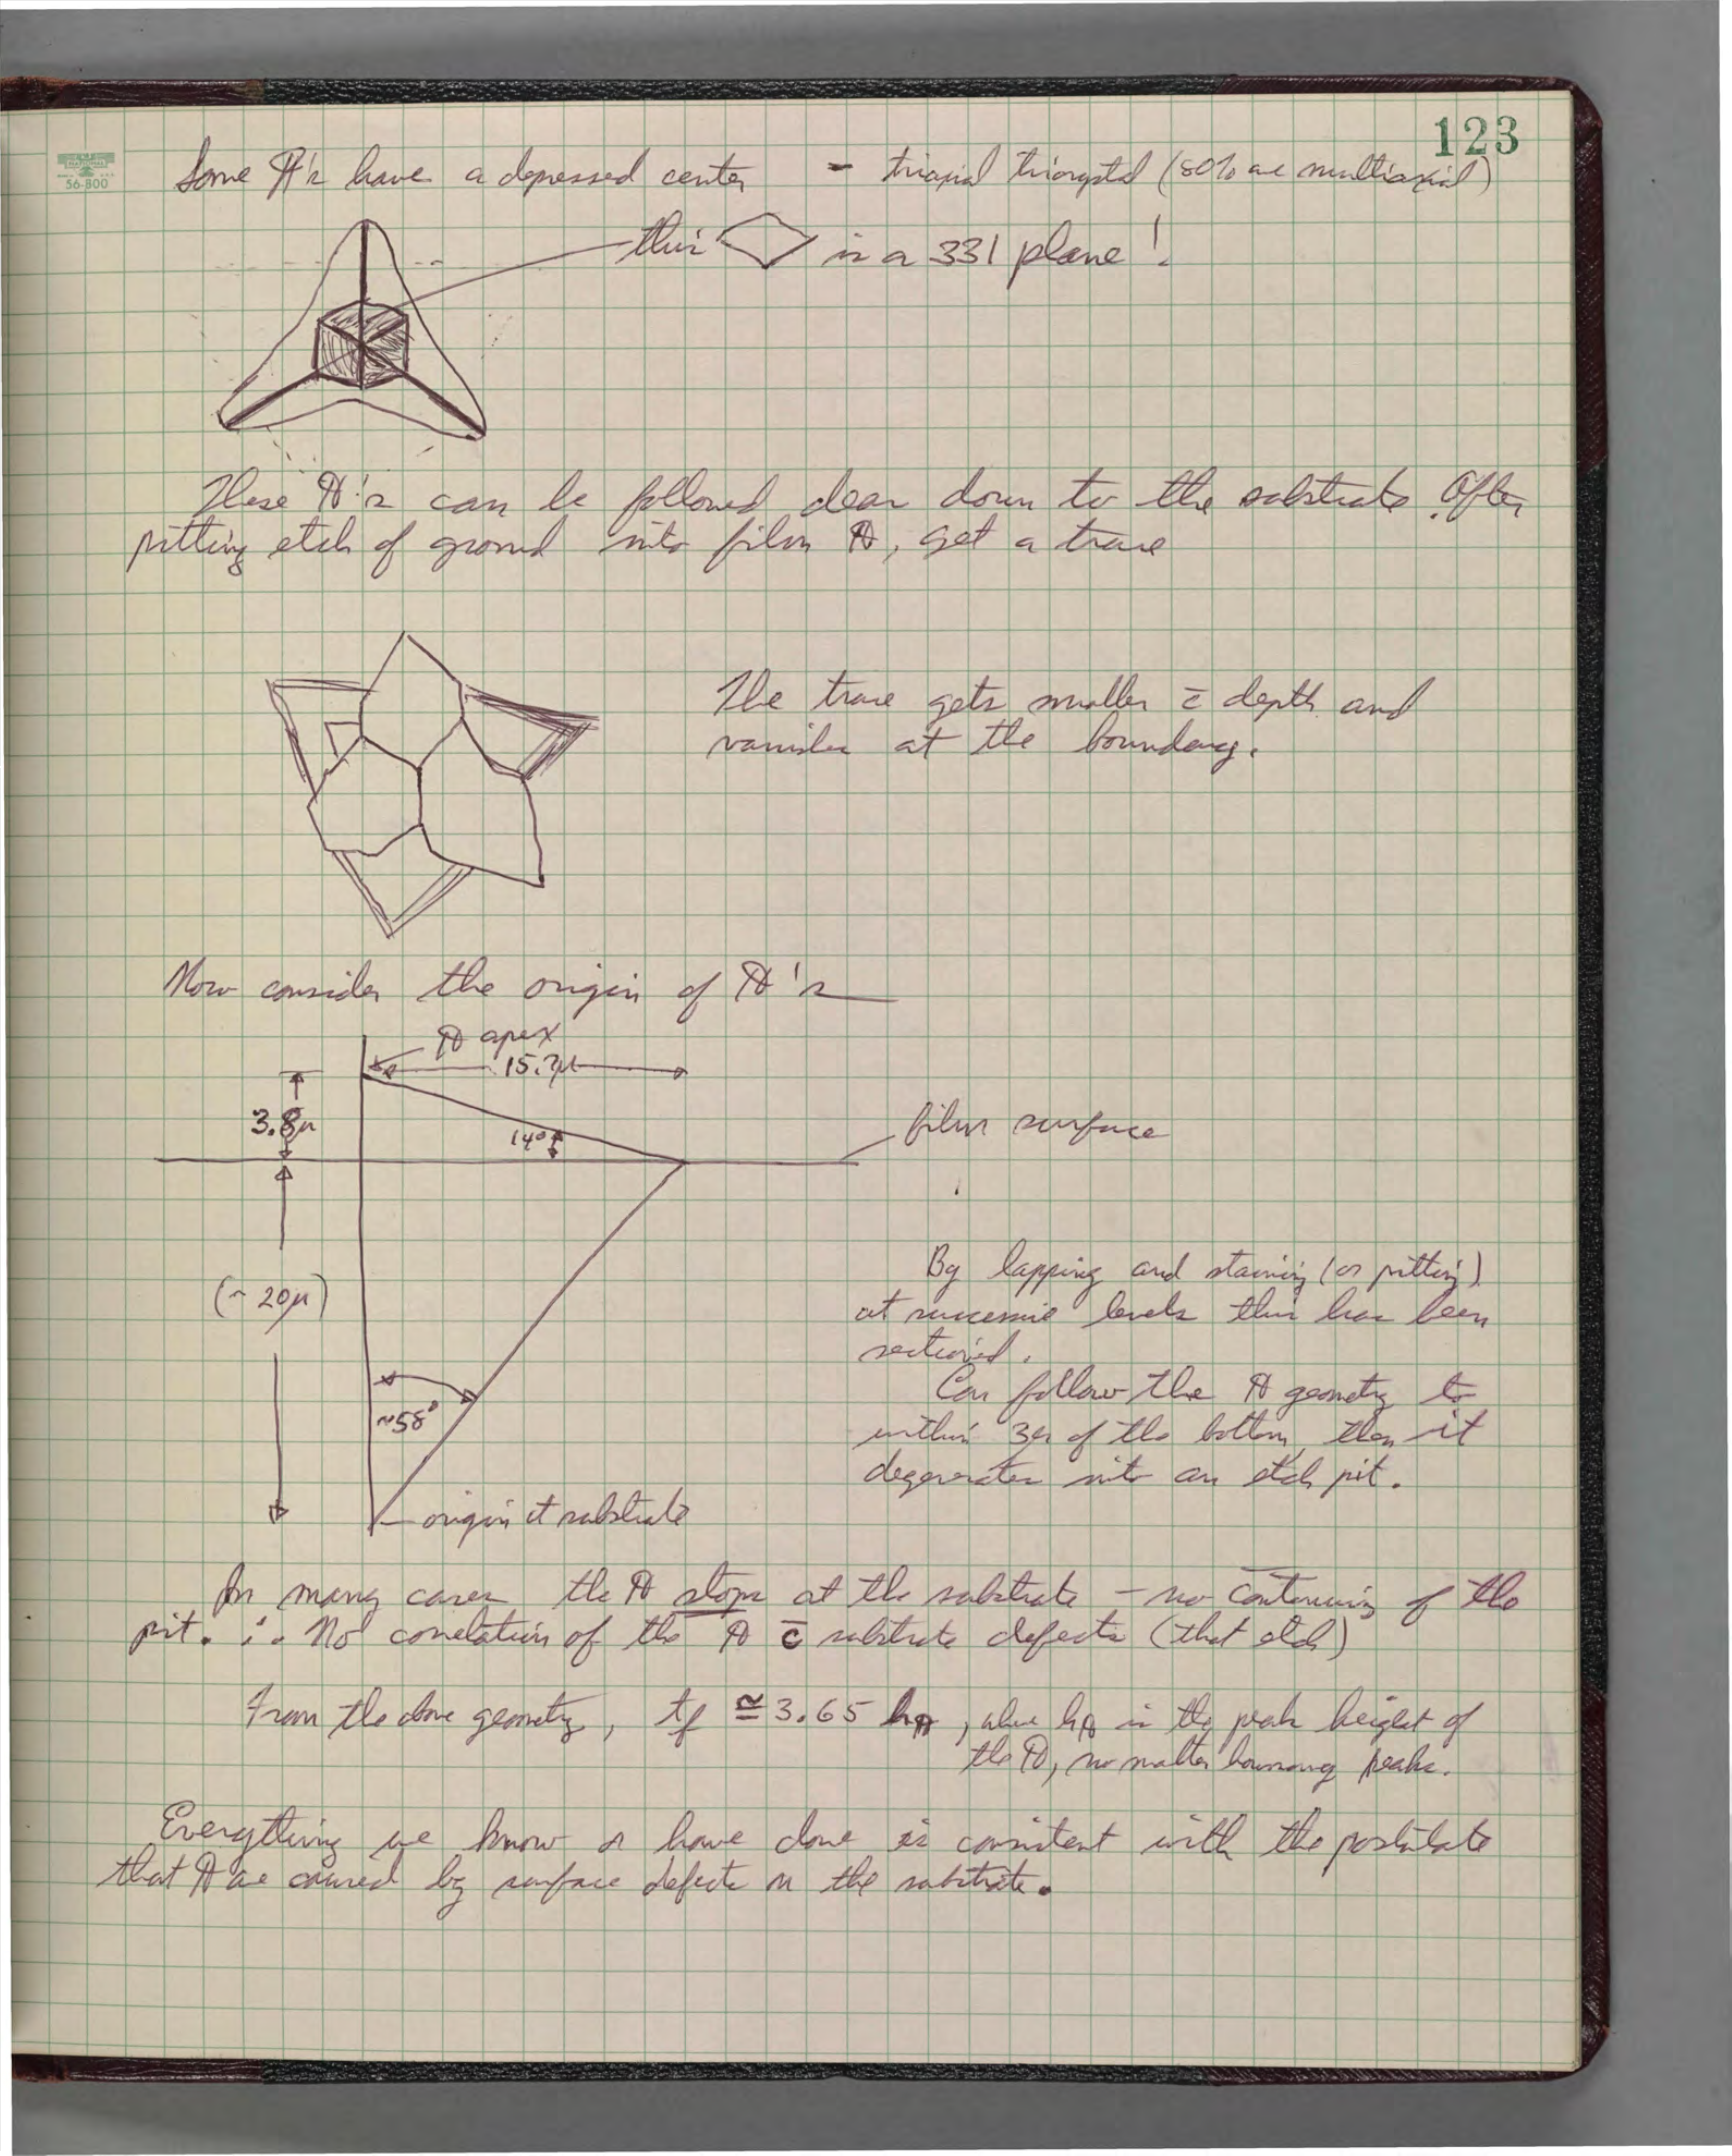 123
NATIONAL
56-800
Some 's have a depressed center - triaxial tricrystal (80% are multiaxial)
this is a 331 plane!
These 's can be followed clear down to the substrate. After
pitting etch of ground into film , get a trace
The trace gets smaller c̄ depth and
vanishes at the boundary.
Now consider the origin of 's
apex
15.2μ
3.8μ
14°
film surface
(~20μ)
~58°
origin at substrate
By lapping and staining (or pitting)
at successive levels this has been
sectioned.
Can follow the geometry to
within 3μ of the bottom, then it
degenerates into an etch pit.
In many cases the stops at the substrate - no continuing of the
pit. ∴ No correlation of the c̄ substrate defects (that etch)
From the above geometry, tf ≅ 3.65 h , where h is the peak height of
the , no matter how many peaks.
Everything we know or have done is consistent with the postulate
that are caused by surface defects on the substrate.